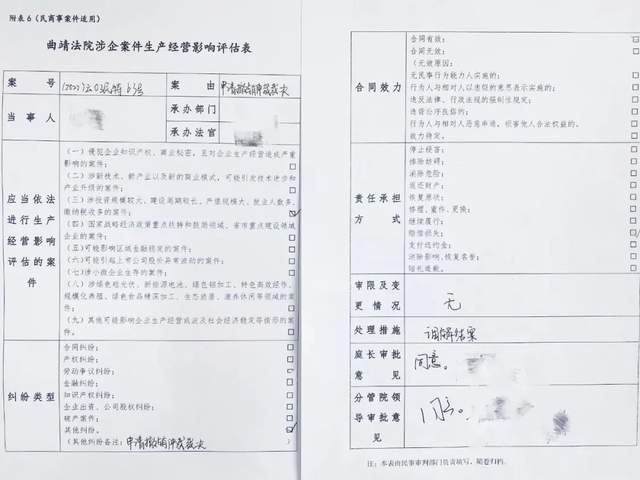 附表6（民商事案件适用）
曲靖法院涉企案件生产经营影响评估表
案 号
案 由
申请撤销仲裁裁决
当事人
承办部门
承办法官
应当依法进行生产经营影响评估的案件
（一）侵犯企业知识产权、商业秘密，且对企业生产经营造成严重
影响的案件；
（二）涉新技术、新产业以及新的商业模式，可能引发技术进步和
产业升级的案件；
（三）涉投资规模较大、建设周期较长、产值规模大、就业人数多、
缴纳税收多的案件；
（四）国家战略经济政策重点扶持和鼓励领域、省市重点建设领域
企业的案件；
（五）可能影响区域金融稳定的案件；
（六）可能引起上市公司股价异常波动的案件；
（七）涉小微企业生存的案件；
（八）涉绿色硅光伏、新能源电池、绿色铝加工、特色高效经作、
规模化养殖、绿色食品精深加工、生态旅居、康养休闲等领域的案
件；
（九）其他可能影响企业生产经营或涉及社会经济稳定等情形的案
件。
纠纷类型
合同纠纷；
产权纠纷；
劳动争议纠纷；
金融纠纷；
知识产权纠纷；
企业出资、公司股权纠纷；
破产案件；
其他纠纷；
（其他纠纷备注：申请撤销仲裁裁决
合同效力
合同有效；
合同无效；
（无效原因：
无民事行为能力人实施的；
行为人与相对人以虚假的意思表示实施的；
违反法律、行政法规的强制性规定；
违背公序良俗的；
行为人与相对人恶意串通，损害他人合法权益的。
效力待定。
责任承担方式
停止侵害；
排除妨碍；
消除危险；
返还财产；
恢复原状；
修理、重作、更换；
继续履行；
赔偿损失；
支付违约金；
消除影响、恢复名誉；
赔礼道歉。
审限及变更情况
无
处理措施
调解结案
庭长审批意见
同意。
分管院领导审批意见
同意。
注：本表由民事审判部门负责填写，随卷归档。